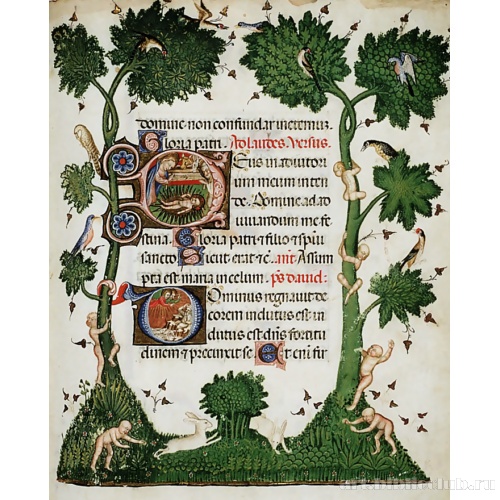 domine non confundar ineternuz.
Gloria patri. Ad laudes. Versus.
Deus in adiutori
um meum inten
de. Domine ad ad
iuuandum me fe
stina. Gloria patri et filio et spiri
sancto Sicut erat etc. ant. Assum
pta est maria in celum. ps dauid.
Dominus regnauit de
corem indutus est in
dutus est dns fortitu
dinem et precinxit se. Et eni fir